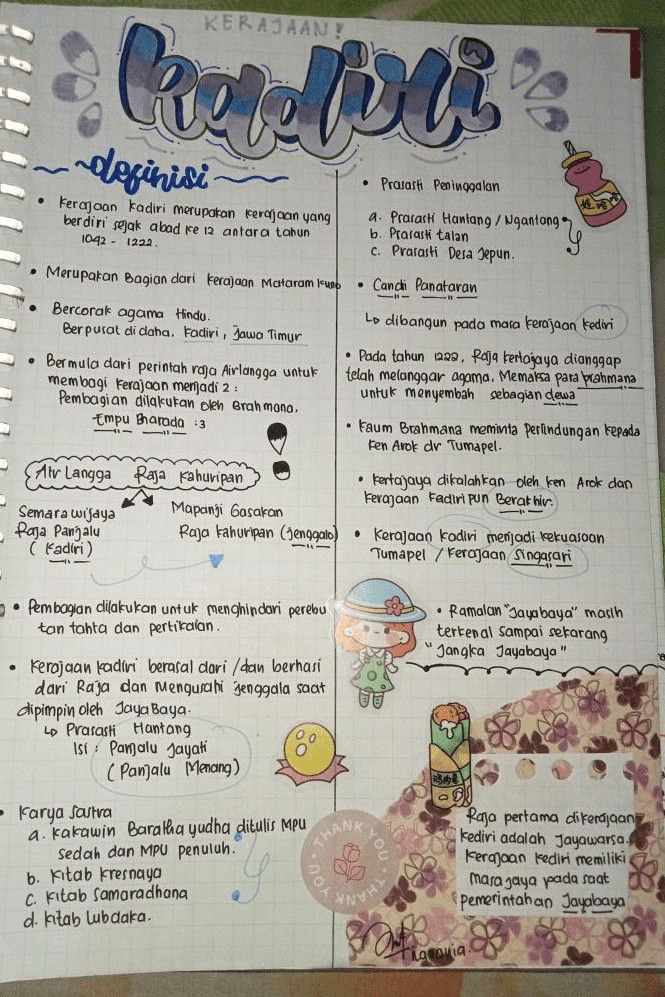 KERAJAAN!
Kadiri
definisi
• Kerajaan Kadiri merupakan kerajaan yang
berdiri sejak abad ke 12 antara tahun
1042 - 1222.
• Merupakan Bagian dari kerajaan Mataram kuno
• Bercorak agama Hindu.
Berpusat di daha, Kadiri, Jawa Timur
• Bermula dari perintah raja Airlangga untuk
membagi kerajaan menjadi 2 :
Pembagian dilakukan oleh Brahmana,
Empu Bharada :3
Air Langga Raja Kahuripan
Semara wijaya
Raja Panjalu
(Kadiri)
Mapanji Gasakan
Raja kahuripan (Jenggalo)
• Pembagian dilakukan untuk menghindari perebu
tan tahta dan pertikaian.
• Kerajaan Kadiri berasal dari /dan berhasi
dari Raja dan Mengusahi Jenggala saat
dipimpin oleh JayaBaya.
↳ Prasasti Hantang
Isi : Panjalu Jayati
(Panjalu Menang)
• Karya Sastra
a. Kakawin Baratha yudha ditulis MPU
sedah dan MPU penuluh.
b. Kitab Kresnaya
c. Kitab Samaradhana
d. Kitab lubdaka.
• Prasasti Peninggalan
a. Prasasti Hantang / Ngantang
b. Prasasti talan
c. Prasasti Desa Jepun.
娃哈哈
• Candi Panataran
↳ dibangun pada masa kerajaan kediri
• Pada tahun 1222, Raja kertajaya dianggap
telah melanggar agama, Memaksa para brahmana
untuk menyembah sebagian dewa
• Kaum Brahmana meminta perlindungan kepada
Ken Arok dr Tumapel.
• Kertajaya dikalahkan oleh ken Arok dan
kerajaan Kadiri pun Berakhir.
• Kerajaan Kadiri menjadi kekuasaan
Tumapel / Kerajaan Singasari
• Ramalan "Jayabaya" masih
terkenal sampai sekarang
"Jangka Jayabaya"
THANK YOU • THANK YOU •
Raja pertama dikerajaan
kediri adalah Jayawarsa.
Kerajaan kediri memiliki
masa jaya pada saat
pemerintahan Jayabaya